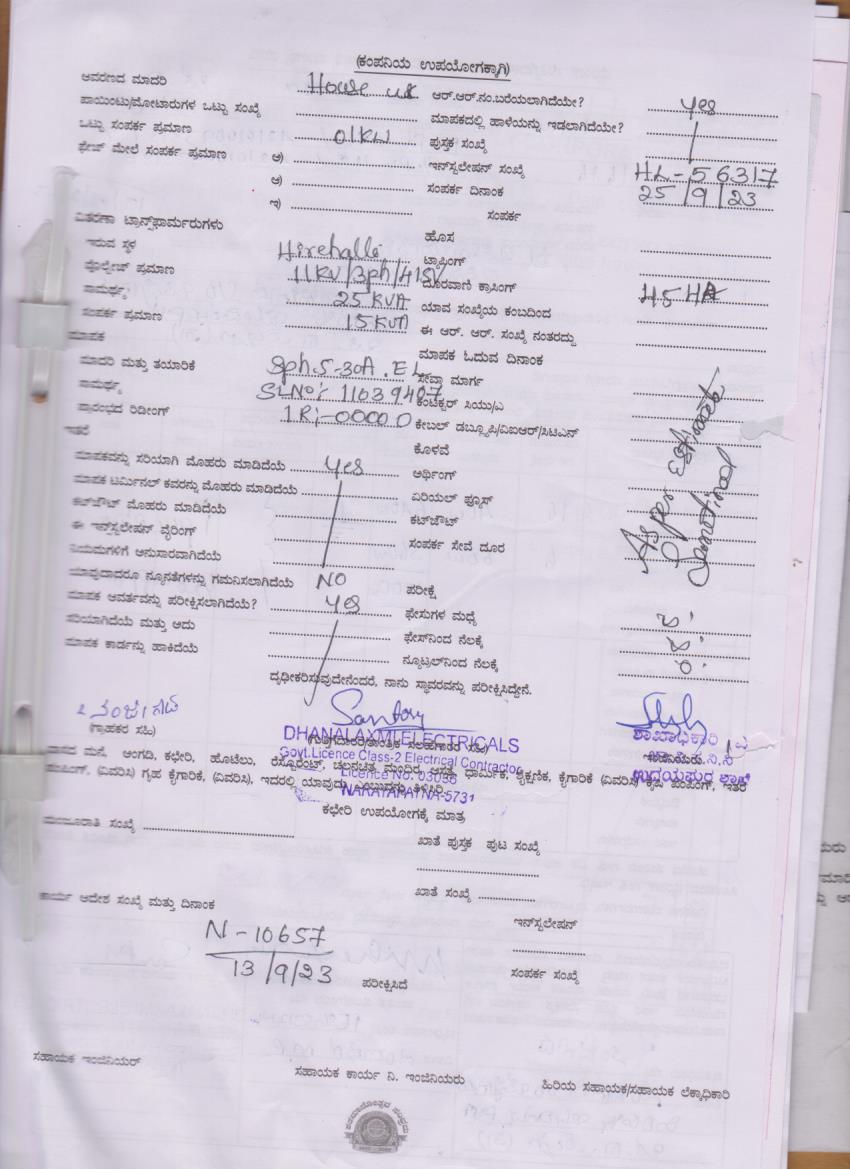 (ಕಂಪನಿಯ ಉಪಯೋಗಕ್ಕಾಗಿ)
ಆವರಣದ ಮಾದರಿ House ಆರ್.ಆರ್.ನಂ.ಬರೆಯಲಾಗಿದೆಯೇ? yes
ಪಾಯಿಂಟು/ಮೋಟಾರುಗಳ ಒಟ್ಟು ಸಂಖ್ಯೆ ಮಾಪಕದಲ್ಲಿ ಹಾಳೆಯನ್ನು ಇಡಲಾಗಿದೆಯೇ?
ಒಟ್ಟು ಸಂಪರ್ಕ ಪ್ರಮಾಣ 01KW ಪುಸ್ತಕ ಸಂಖ್ಯೆ
ಫೇಜ್ ಮೇಲೆ ಸಂಪರ್ಕ ಪ್ರಮಾಣ ಅ) ಇನ್‌ಸ್ಟಲೇಷನ್ ಸಂಖ್ಯೆ HL-56317
ಆ) ಸಂಪರ್ಕ ದಿನಾಂಕ 25/9/23
ಇ) ಸಂಪರ್ಕ
ವಿತರಣಾ ಟ್ರಾನ್ಸ್‌ಫಾರ್ಮರುಗಳು ಹೊಸ
ಇರುವ ಸ್ಥಳ Hirehalli ಟ್ಯಾಪಿಂಗ್
ವೋಲ್ಟೇಜ್ ಪ್ರಮಾಣ 11KV/3ph/415V ದೂರವಾಣಿ ಕ್ರಾಸಿಂಗ್
ಸಾಮರ್ಥ್ಯ 25 KVA ಯಾವ ಸಂಖ್ಯೆಯ ಕಂಬದಿಂದ
ಸಂಪರ್ಕ ಪ್ರಮಾಣ 15KVA ಈ ಆರ್. ಆರ್. ಸಂಖ್ಯೆ ನಂತರದ್ದು
ಮಾಪಕ ಮಾಪಕ ಓದುವ ದಿನಾಂಕ
ಮಾದರಿ ಮತ್ತು ತಯಾರಿಕೆ Sph.5-30A.EL ಸೇವಾ ಮಾರ್ಗ
ಸಾಮರ್ಥ್ಯ SLNo: 11039407 ಕಂಡಕ್ಟರ್ ಸಿಯು/ಎ
ಪ್ರಾರಂಭದ ರಿಡೀಂಗ್ IR:-00000 ಕೇಬಲ್ ಡಬ್ಲ್ಯೂಪಿ/ವಿಐಆರ್/ಸಿಟಿಎನ್
ಇತರೆ ಕೊಳವೆ
ಮಾಪಕವನ್ನು ಸರಿಯಾಗಿ ಮೊಹರು ಮಾಡಿದೆಯೆ yes ಅರ್ಥಿಂಗ್
ಮಾಪಕ ಟರ್ಮಿನಲ್ ಕವರನ್ನು ಮೊಹರು ಮಾಡಿದೆಯೆ ಏರಿಯಲ್ ಫ್ಯೂಸ್
ಕಟ್‌ಔಟ್ ಮೊಹರು ಮಾಡಿದೆಯೆ ಕಟ್‌ಔಟ್
ಈ ಇನ್‌ಸ್ಟಲೇಷನ್ ವೈರಿಂಗ್ ಸಂಪರ್ಕ ಸೇವೆ ದೂರ
ನಿಯಮಗಳಿಗೆ ಅನುಸಾರವಾಗಿದೆಯೆ As per
ಯಾವುದಾದರೂ ನ್ಯೂನತೆಗಳನ್ನು ಗಮನಿಸಲಾಗಿದೆಯೆ NO ಪರೀಕ್ಷೆ
ಮಾಪಕ ಆವರ್ತವನ್ನು ಪರೀಕ್ಷಿಸಲಾಗಿದೆಯೆ? yes ಫೇಸುಗಳ ಮಧ್ಯೆ
ಸರಿಯಾಗಿದೆಯೆ ಮತ್ತು ಅದು ಫೇಸ್‌ನಿಂದ ನೆಲಕ್ಕೆ
ಮಾಪಕ ಕಾರ್ಡನ್ನು ಹಾಕಿದೆಯೆ ನ್ಯೂಟ್ರಲ್‌ನಿಂದ ನೆಲಕ್ಕೆ
ದೃಢೀಕರಿಸುವುದೇನೆಂದರೆ, ನಾನು ಸ್ಥಾವರವನ್ನು ಪರೀಕ್ಷಿಸಿದ್ದೇನೆ.
(ಗ್ರಾಹಕರ ಸಹಿ)
DHANALAXMI ELECTRICALS
Govt.Licence Class-2 Electrical Contractor
Licence No. 03036
NARAYARATNA-5731
ಶಾಖಾಧಿಕಾರಿ
ಉದಯಪುರ ಶಾಖೆ
ವಾಸದ ಮನೆ, ಅಂಗಡಿ, ಕಛೇರಿ, ಹೊಟೇಲು, ರೆಸ್ಟೋರೆಂಟ್, ಚಲನಚಿತ್ರ ಮಂದಿರ, ಧಾರ್ಮಿಕ, ಶೈಕ್ಷಣಿಕ, ಕೈಗಾರಿಕೆ (ವಿವರಿಸಿ) ಕೃಷಿ ಪಂಪಿಂಗ್, ಇತರೆ
ಪಂಪಿಂಗ್, (ವಿವರಿಸಿ) ಗೃಹ ಕೈಗಾರಿಕೆ, (ವಿವರಿಸಿ), ಇದರಲ್ಲಿ ಯಾವುದು ಎಂಬುದನ್ನು ತಿಳಿಸಿರಿ.
ಕಛೇರಿ ಉಪಯೋಗಕ್ಕೆ ಮಾತ್ರ
ಮಂಜೂರಾತಿ ಸಂಖ್ಯೆ ಖಾತೆ ಪುಸ್ತಕ ಪುಟ ಸಂಖ್ಯೆ
ಖಾತೆ ಸಂಖ್ಯೆ
ಕಾರ್ಯ ಆದೇಶ ಸಂಖ್ಯೆ ಮತ್ತು ದಿನಾಂಕ ಇನ್‌ಸ್ಟಲೇಷನ್
N-10657
13/9/23 ಪರೀಕ್ಷಿಸಿದೆ ಸಂಪರ್ಕ ಸಂಖ್ಯೆ
ಸಹಾಯಕ ಇಂಜಿನಿಯರ್
ಸಹಾಯಕ ಕಾರ್ಯ ನಿ. ಇಂಜಿನಿಯರು ಹಿರಿಯ ಸಹಾಯಕ/ಸಹಾಯಕ ಲೆಕ್ಕಾಧಿಕಾರಿ